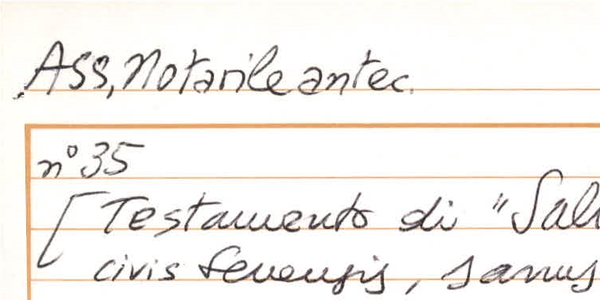 ASS, Notarile antec.
n° 35
[Testamento di "Sal
civis senensis, sanus